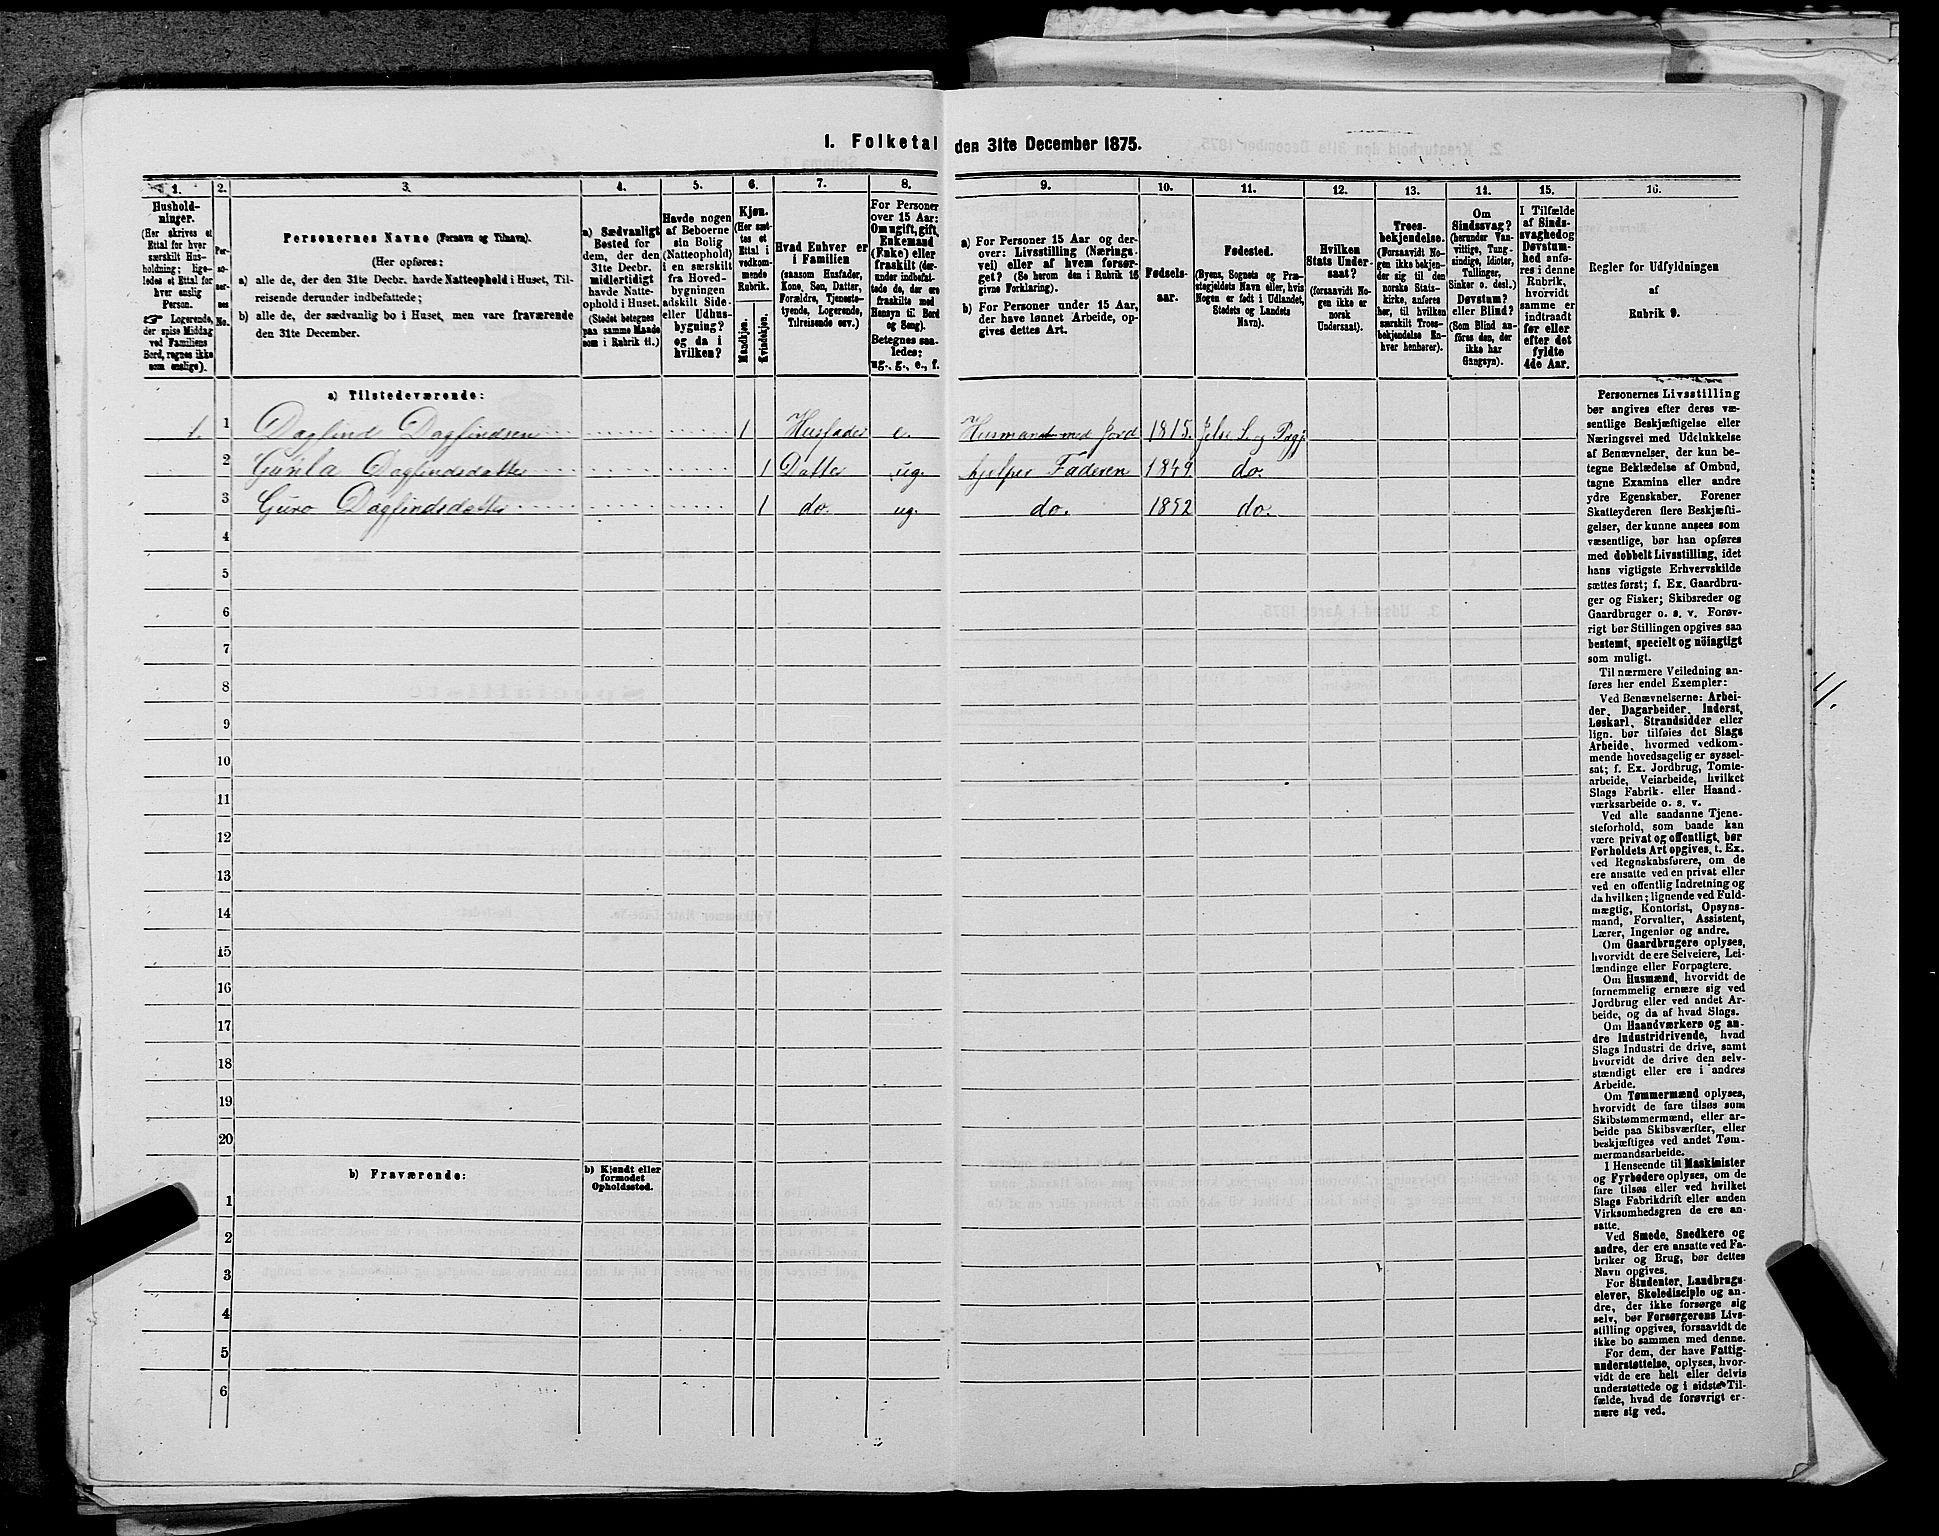 1. Folketal den 31te December 1875.
1.
2.
3.
4.
5.
6.
7.
8.
9.
10.
11.
12.
13.
14.
15.
16.
Hushold-
ninger.
(Her skrives et
Ettal for hver
særskilt Hus-
holdning; lige-
ledes et Ettal for
hver enslig
Person.
☞ Logerende,
der spise Middag
ved Familiens
Bord, regnes ikke
som enslige).
Per-
so-
ner-
nes
No.
Personernes Navne (Fornavn og Tilnavn).
(Her opføres:
a) alle de, der den 31te Decbr. havde Natteophold i Huset, Til-
reisende derunder indbefattede;
b) alle de, der sædvanlig bo i Huset, men vare fraværende
den 31te December.
a) Sædvanligt
Bosted for
dem, der den
31te Decbr.
midlertidigt
havde Natte-
ophold i Huset.
(Stedet betegnes
paa samme Maade
som i Rubrik 11.)
Havde nogen
af Beboerne
sin Bolig
(Natteophold)
i en særskilt
fra Hoved-
bygningen
adskilt Side-
eller Udhus-
bygning?
og da i
hvilken?
Kjøn.
(Her sæt-
tes et
Ettal i
vedkom-
mende
Rubrik.
Mandkjøn.
Kvindekjøn.
Hvad Enhver er
i Familien
(saasom Husfader,
Kone, Søn, Datter,
Forældre, Tjeneste-
tyende, Logerende,
Tilreisende osv.)
For Personer
over 15 Aar:
Om ugift, gift,
Enkemand
(Enke) eller
fraskilt (der-
under indbefat-
tede de, der ere
fraskilte med
Hensyn til Bord
og Seng).
Betegnes saa-
ledes:
ug., g., e., f.
a) For Personer 15 Aar og der-
over: Livsstilling (Nærings-
vei) eller af hvem forsør-
get? (Se herom den i Rubrik 16
givne Forklaring).
b) For Personer under 15 Aar,
der have lønnet Arbeide, op-
gives dettes Art.
Fødsels-
aar.
Fødested.
(Byens, Sognets og Præ-
stegjeldets Navn eller, hvis
Nogen er født i Udlandet,
Stedets og Landets
Navn).
Hvilken
Stats Under-
saat?
(forsaavidt No-
gen ikke er
norsk
Undersaat).
Troes-
bekjendelse.
(Forsaavidt No-
gen ikke bekjen-
der sig til den
norske Stats-
kirke, anføres
her, til hvilken
særskilt Troes-
bekjendelse En-
hver henhører).
Om
Sindssvag?
(herunder Van-
vittige, Tung-
sindige, Idioter,
Tullinger,
Sinker o. desl.)
Døvstum?
eller Blind?
(Som Blind an-
føres den, der
ikke har
Gangsyn).
I Tilfælde
af Sinds-
svaghed og
Døvstum-
hed anfø-
res i denne
Rubrik,
hvorvidt
samme er
indtraadt
før eller
efter det
fyldte
4de Aar.
Regler for Udfyldningen
af
Rubrik 9.
a) Tilstedeværende:
1. 1 Dagfind Dagfindsen 1 Husfader e. Husmand med Jord 1815. Jelse S. og Pgj.
2 Gunla Dagfindsdatter 1 Datter ug. hjelper Faderen 1849 do.
3 Guro Dagfindsdatter 1 do. ug. do. 1852 do.
4
5
6
7
8
9
10
11
12
13
14
15
16
17
18
19
20
b) Fraværende:
b) Kjendt eller
formodet
Opholdssted.
1
2
3
4
5
6
Personernes Livsstilling
bør angives efter deres væ-
sentlige Beskjæftigelse eller
Næringsvei med Udelukkelse
af Benævnelser, der kun be-
tegne Beklædelse af Ombud,
tagne Examina eller andre
ydre Egenskaber. Forener
Skatteyderen flere Beskjæfti-
gelser, der kunne ansees som
væsentlige, bør han opføres
med dobbelt Livsstilling, idet
hans vigtigste Erhvervskilde
sættes først; f. Ex. Gaardbru-
ger og Fisker; Skibsreder og
Gaardbruger o. s. v. Forøv-
rigt bør Stillingen opgives saa
bestemt, specielt og nöiagtigt
som muligt.
Til nærmere Veiledning an-
føres her endel Exempler:
Ved Benævnelserne: Arbei-
der, Dagarbeider, Inderst,
Løskarl, Strandsidder eller
lign. bør tilføies det Slags
Arbeide, hvormed vedkom-
mende hovedsagelig er syssel-
sat; f. Ex. Jordbrug, Tomte-
arbeide, Veiarbeide, hvilket
Slags Fabrik- eller Haand-
værksarbeide o. s. v.
Ved alle saadanne Tjene-
steforhold, som baade kan
være privat og offentligt, bør
Forholdets Art opgives, t. Ex.
ved Regnskabsførere, om de
ere ansatte ved en privat eller
ved en offentlig Indretning og
da hvilken; lignende ved Fuld-
mægtig, Kontorist, Opsyns-
mand, Forvalter, Assistent,
Lærer, Ingeniør og andre.
Om Gaardbrugere oplyses,
hvorvidt de ere Selveiere, Lei-
lændinge eller Forpagtere.
Om Husmænd, hvorvidt de
fornemmelig ernære sig ved
Jordbrug eller ved andet Ar-
beide, og da af hvad Slags.
Om Haandværkere og an-
dre Industridrivende, hvad
Slags Industri de drive, samt
hvorvidt de drive den selv-
stændigt eller ere i andres
Arbeide.
Om Tømmermænd oplyses,
hvorvidt de fare tilsøs som
Skibstømmermænd, eller ar-
beide paa Skibsværfter, eller
beskjæftiges ved andet Tøm-
mermandsarbeide.
I Henseende til Maskinister
og Fyrbødere oplyses, om de
fare tilsøs eller ved hvilket
Slags Fabrikdrift eller anden
Virksomhedsgren de ere an-
satte.
Ved Smede, Snedkere og
andre, der ere ansatte ved Fa-
briker og Brug, bør dettes
Navn opgives.
For Studenter, Landbrugs-
elever, Skoledisciple og an-
dre, der ikke forsørge sig
selv, bør Forsørgerens Livs-
stilling opgives, forsaavidt de
ikke bo sammen med denne.
For dem, der have Fattig-
understøttelse, oplyses, hvor-
vidt de ere helt eller delvis
understøttede og i sidste Til-
fælde, hvad de forøvrigt er-
nære sig ved.